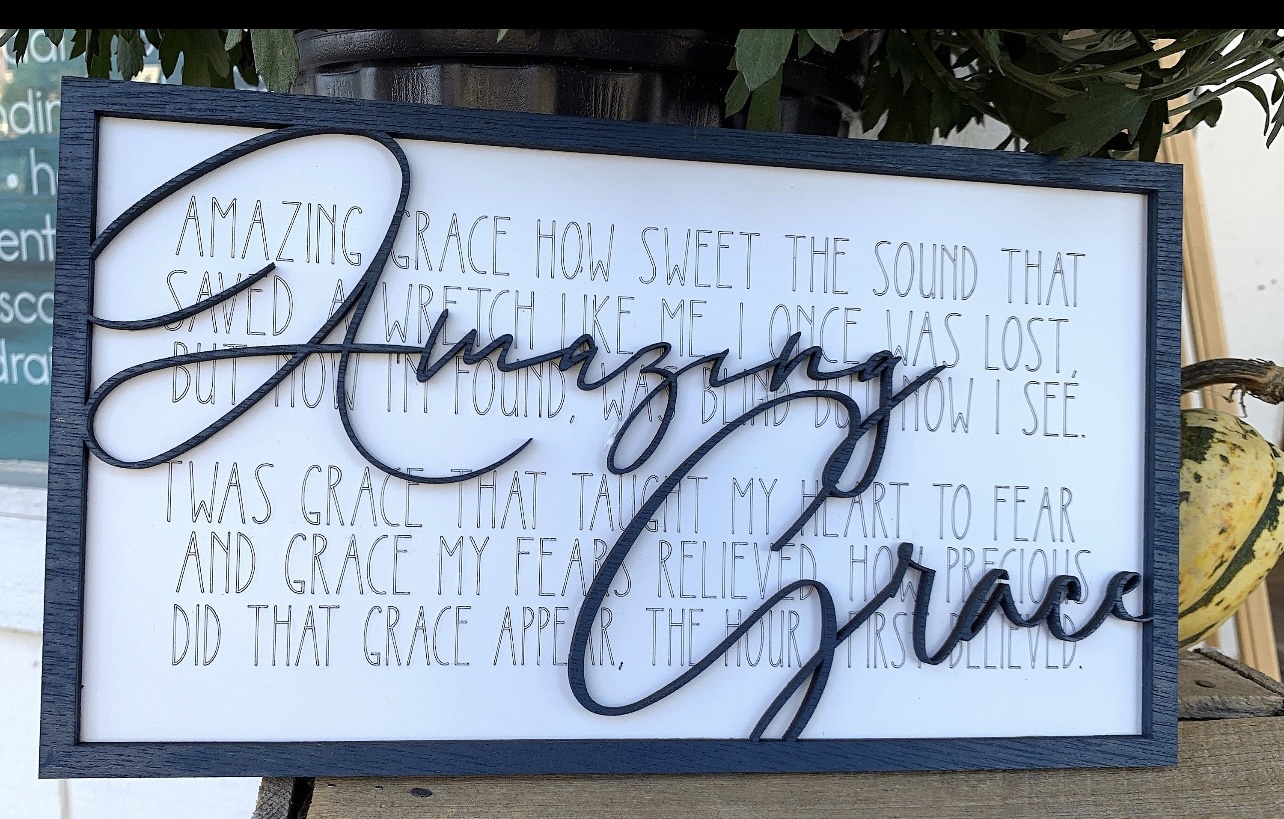 AMAZING GRACE HOW SWEET THE SOUND THAT
SAVED A WRETCH LIKE ME I ONCE WAS LOST,
BUT NOW I'M FOUND, WAS BLIND BUT NOW I SEE.
TWAS GRACE THAT TAUGHT MY HEART TO FEAR
AND GRACE MY FEARS RELIEVED HOW PRECIOUS
DID THAT GRACE APPEAR, THE HOUR I FIRST BELIEVED.
Amazing
Grace